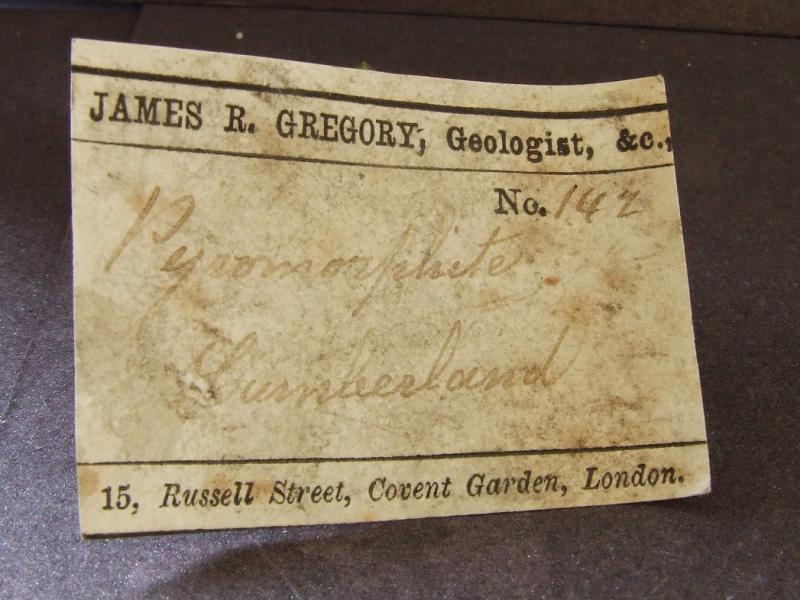 JAMES R. GREGORY, Geologist, &c.,
No. 142
Pyromorphite
Cumberland
15, Russell Street, Covent Garden, London.